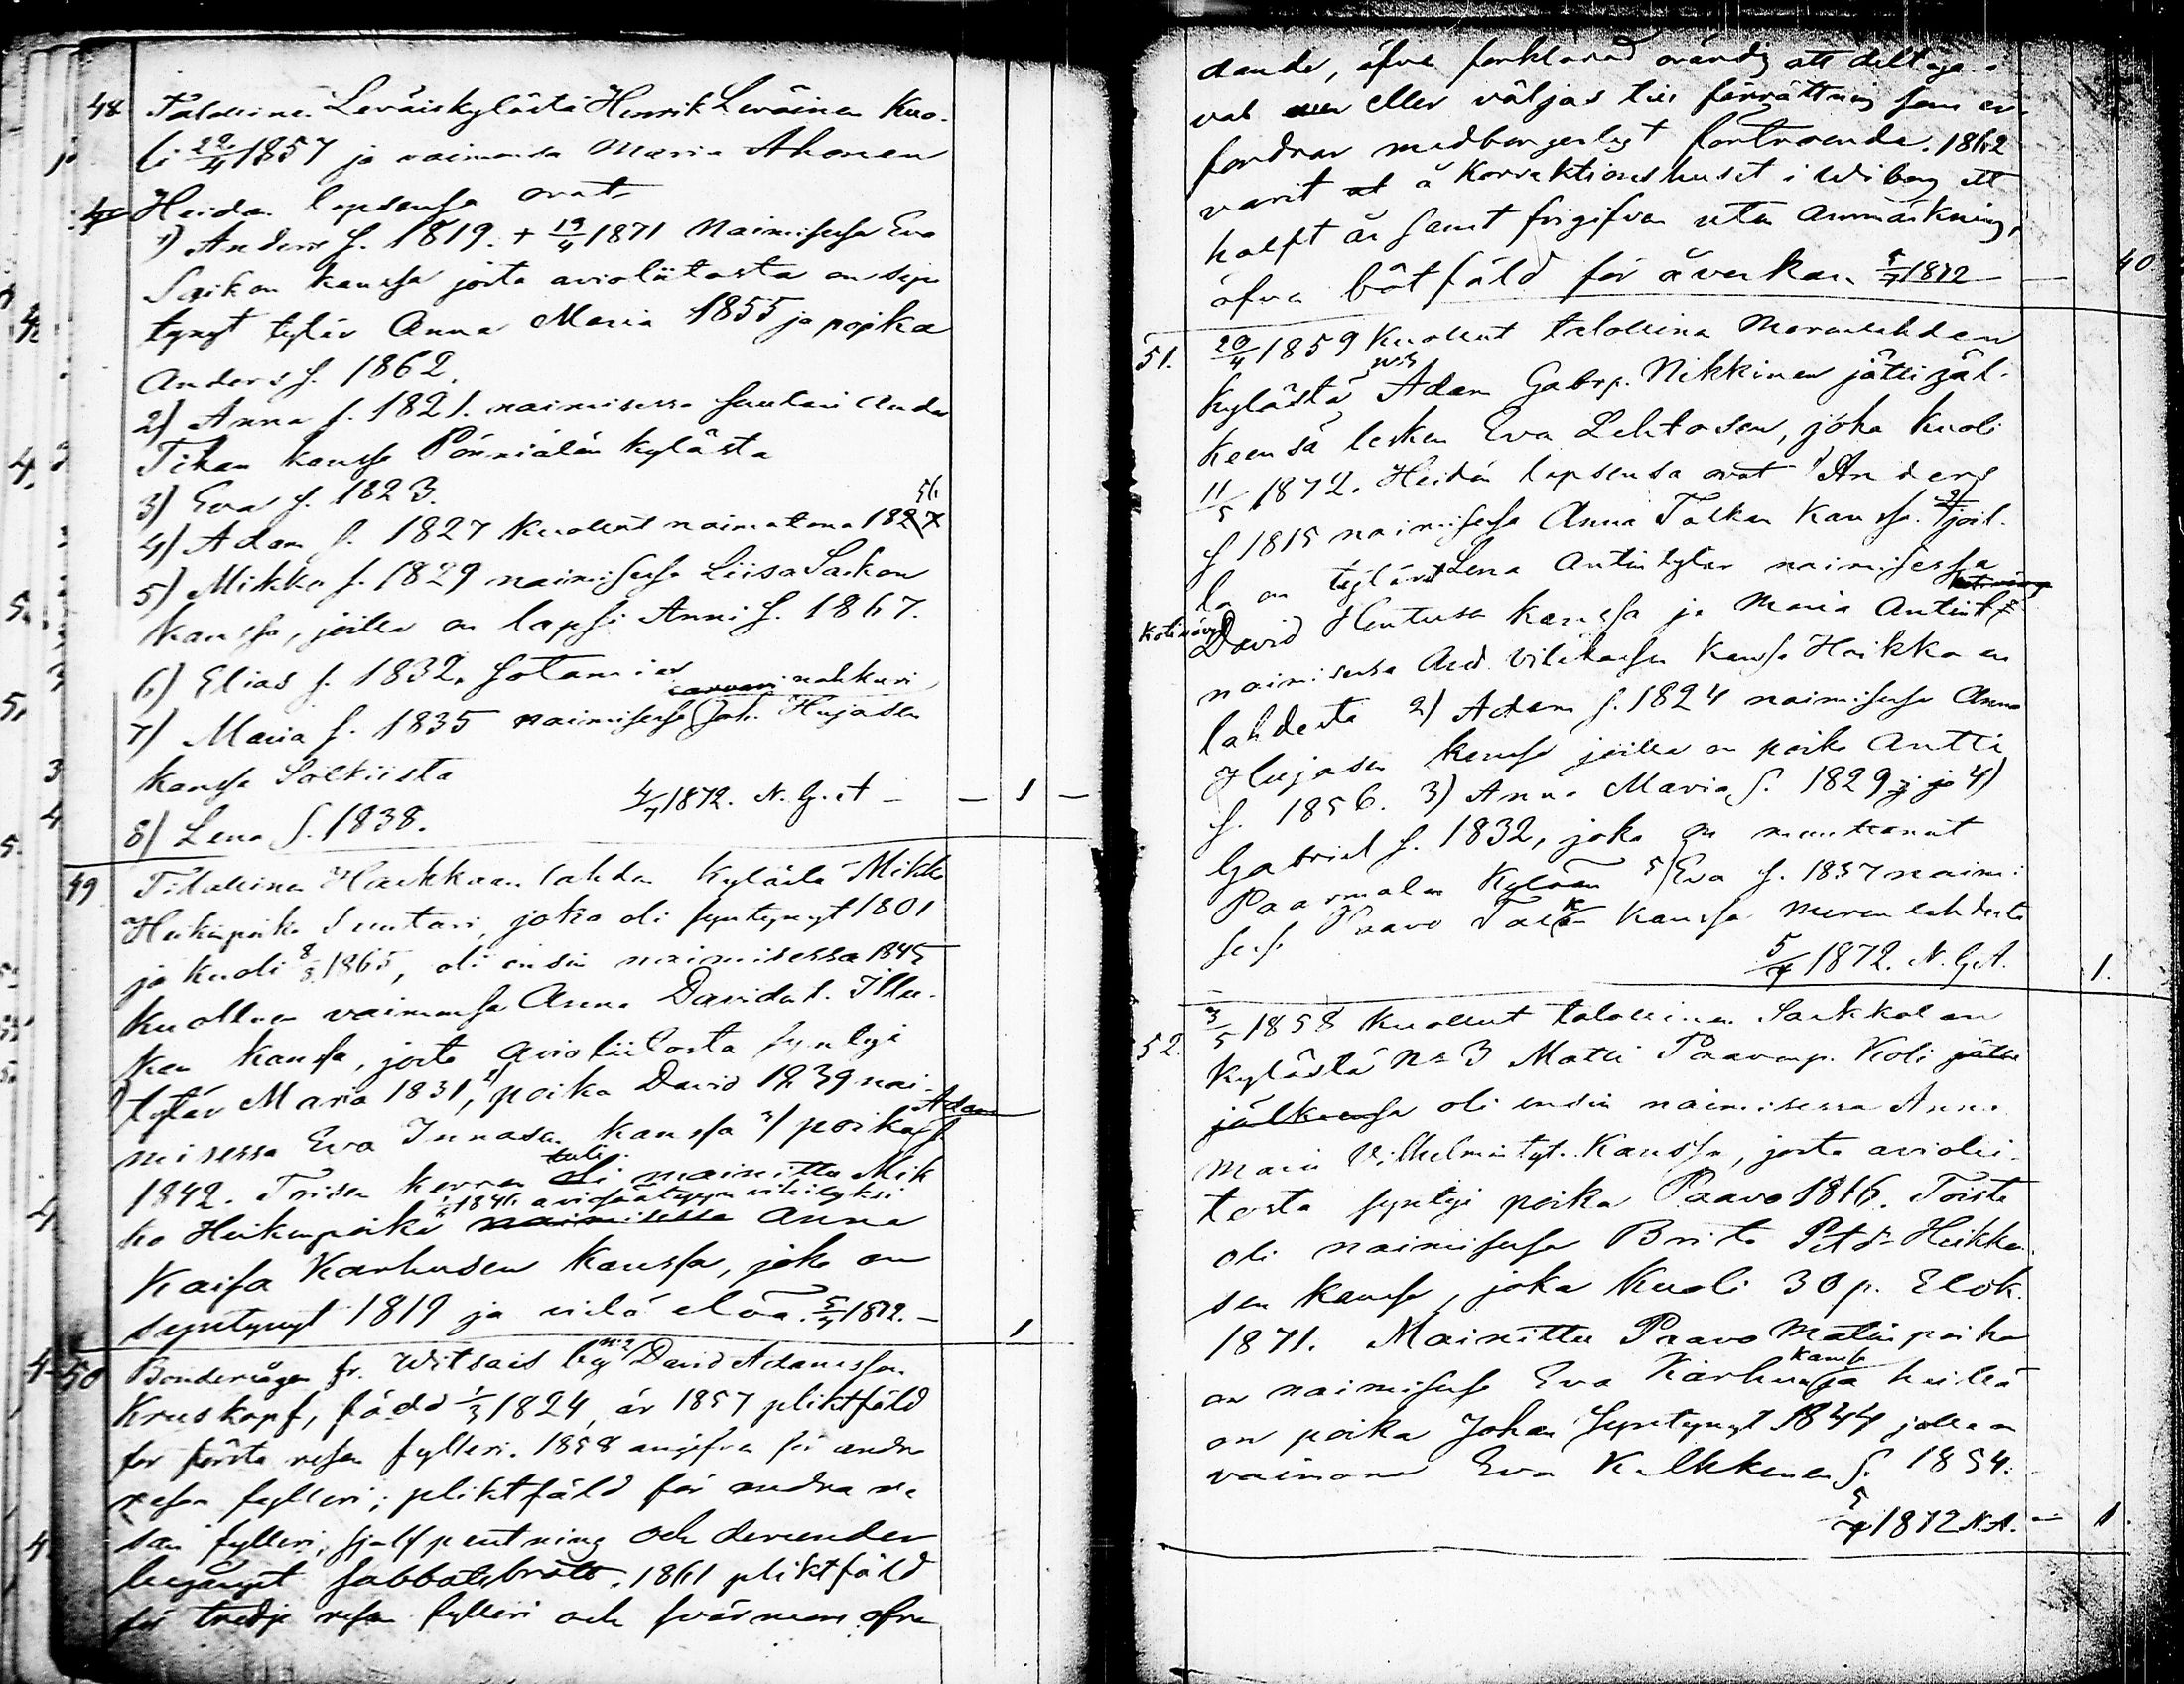 48 Talollinen Leväiskylästä Henrik Leväinen kuo-
li 22/4 1857 ja vaimonsa Maria Ahonen
Heidän lapsensa ovat
1) Anders s. 1819. + 19/4 1871 Naimisessa Eva
Saikon kanssa josta avioliitosta on syn
tynyt tytär Anna Maria 1855 ja poika
Anders s. 1862.
2) Anna s. 1821. naimisessa
kanssa Pönniälän kylästä
3) Eva s. 1823.
4) Adam s. 1827 kuollut naimatonna 1856
5) Mikko s. 1829 naimisessa Liisa Saikon
kanssa, joilla on lapsi Anni s. 1867.
6) Elias s. 1832. sotamies
7) Maria s. 1835 naimisessa nahkuri Joh. Hujasen
kanssa Sölkiistä
8) Lena s. 1838. 4/7 1872. N. G. A. — 1 —
49 Tilallinen Haikkaanlahden kylästä Mikko
Heikinpoika Suntari, joka oli syntynyt 1801
ja kuoli 1865, oli ensin naimisessa 1845
kuolleen vaimonsa Anna Davidint. Illu-
ken kanssa, josta avioliitosta syntyi
1) tytär Maria 1831, 2) poika David 1839 nai-
misessa Eva Innasen kanssa 3) poika Adam s.
1842. Toisen kerran tuli mainittu Mik
ko Heikinpoika 1846 aviosäätyyn vihityksi Anna
Kaisa Karhusen kanssa, joka on
syntynyt 1819 ja vielä elää. 5/7 1872. — 1
50 Bonden från Witsais by No 2 David Adamsson
Kruskopf, född 1/3 1824, är 1857 pliktfäld
för första resan fylleri. 1858 angifven för andra
resan fylleri; pliktfäld för andra re
san fylleri, och derunder
begånget sabbatsbrott. 1861 pliktfäld
för tredje resan fylleri och svärmen ofva
dande, äfven förklarad ovärdig att deltaga i
val eller väljas till förrättning som er-
fordrar medborgerligt förtroende. 1862
varit å Korrektionshuset i Wiborg ett
halft år samt frigifven utan anmärkning,
äfven bötfäld för åverkan. 5/7 1872 — 40
51. 20/4 1859 kuollut talollinen Merenlahden
kylästä No 3 Adam Gabrp. Nikkinen jätti jäl-
keensä lesken Eva Lehtosen, joka kuoli
11/5 1872. Heidän lapsensa ovat 1) Anders
s 1815 naimisessa Anna Talkan kanssa. joil-
la on tytäret Lena Antintytär naimisessa
kotivävy David Hentusen kanssa ja Maria Antint.
naimisessa And. Vilikaisen kanssa Haikkaan
lahdesta 2) Adam s. 1824 naimisessa Anna
Hujasen kanssa joilla on poika Antti
s. 1856. 3) Anna Maria s. 1829 ja 4)
Gabriel s. 1832, joka on muuttanut
kylään 5) Eva s. 1837 naimi-
sessa Paavo Talkan kanssa Merenlahdesta
5/7 1872. N. G. A. 1.
52. 3/5 1858 kuollut talollinen Sarkkolan
kylästä No 3 Matti Paavonp. Koli jätti
jälkeensä oli ensin naimisessa Anna
Maria Vilhelmintyt. kanssa, josta aviolii-
tosta syntyi poika Paavo 1816. Toista
oli naimisessa Brita Petd Heikka-
sen kanssa, joka kuoli 30 p. Elok.
1871. Mainittu Paavo Matinpoika
on naimisessa Eva Karhusen kanssa ja heillä
on poika Johan syntynyt 1844 jolla on
vaimona Eva Kulkkinen s. 1854.
5/7 1872 N. A. — 1.